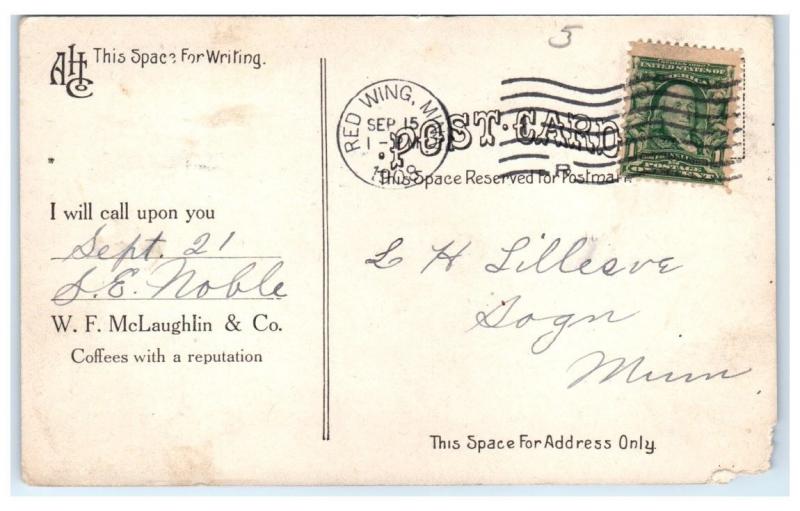 AHCo This Space For Writing.
5
RED WING, MINN.
SEP 15
1908
POST CARD
This Space Reserved for Postmark
UNITED STATES OF
AMERICA
I will call upon you
Sept. 21
S. E. Noble
W. F. McLaughlin & Co.
Coffees with a reputation
L H Lillesve
Sogn
Minn.
This Space For Address Only.